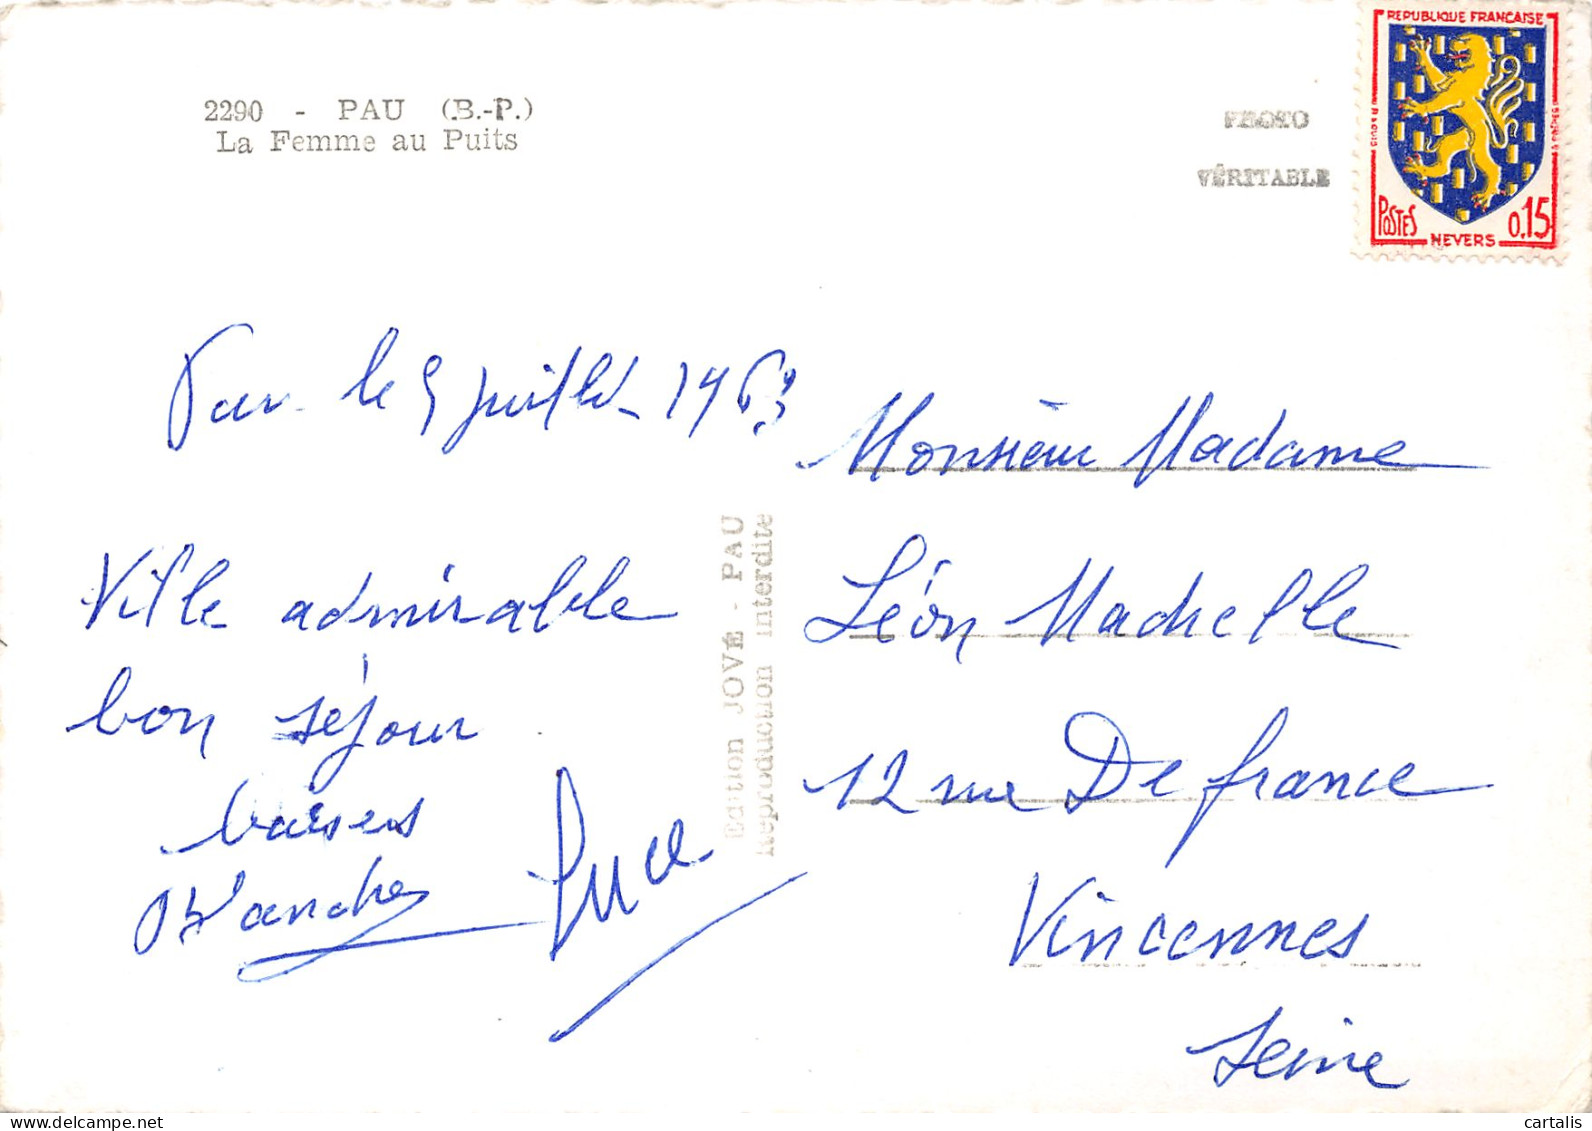 2290 - PAU (B.-P.)
La Femme au Puits
PHOTO
VÉRITABLE
REPUBLIQUE FRANÇAISE
POSTES
0,15
NEVERS
Pau le 5 juillet 1963
Ville admirable
bon séjour
baisers
Blanche Luce
Edition JOVÉ - PAU
Reproduction interdite
Monsieur Madame
Léon Machelle
12 rue De france
Vincennes
Seine
cartalis
delcampe.net